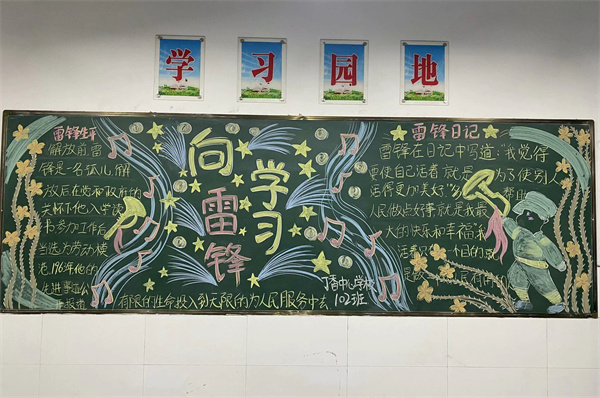 学习园地
雷锋生平
解放前,雷
锋是一名孤儿,解
放后在党和政府的
关怀下他入学读
书参加工作后
当选为劳动模
范,1960年他的
先进事迹公
向雷锋
学习
有限的生命投入到无限的为人民服务中去
中心学校
102班
雷锋日记
雷锋在日记中写道:"我觉得
要使自己活着就是为了使别人
活得更加美好。"
人民做点好事就是我最
大的快乐和幸福
活着只有一个目的